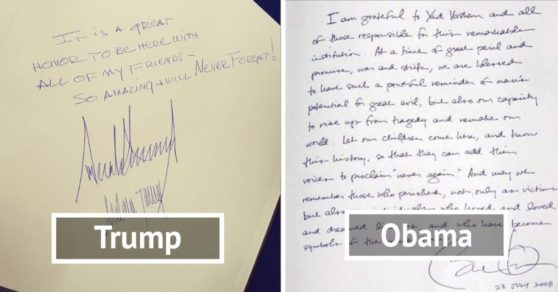 IT IS A GREAT
HONOR TO BE HERE WITH
ALL OF MY FRIENDS -
SO AMAZING & WILL NEVER FORGET!
Trump
I am grateful to Yad Vashem and all
of those responsible for this remarkable
institution. At a time of great peril and
promise, war and strife, we are blessed
to have such a powerful reminder of man's
potential for great evil, but also our capacity
to rise up from tragedy and remake our
world. Let our children come here, and know
this history, so that they can add their
voices to proclaim "never again." And may we
remember those who perished, not only as victims
but also individuals who loved and loved
and dreamed and who have become
symbols of the
Obama
23 JULY 2008